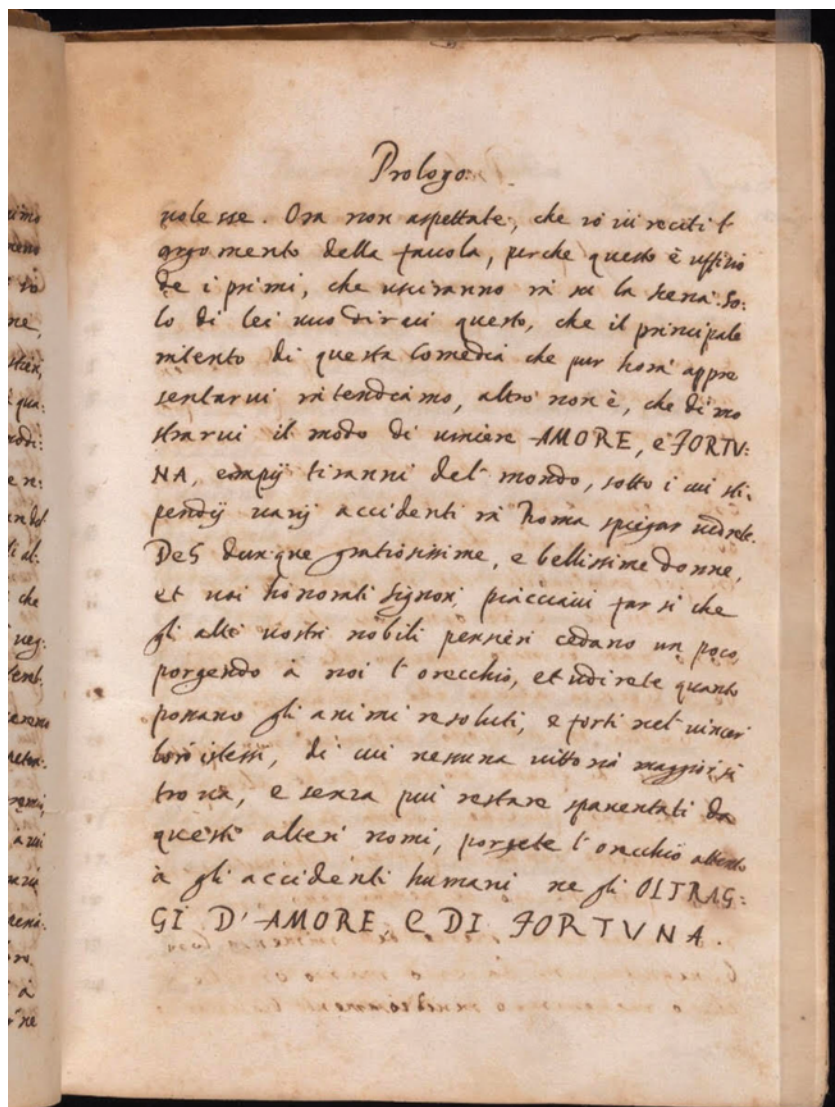 Prologo.
uolesse. Ora non aspettate, che io ui reciti l'
argomento della fauola, perche questo è uffitio
de i primi, che usciranno in su la scena. So:
lo di lei uuo dirui questo, che il principale
intento di questa Comedia che pur hora appre
sentarui intendiamo, altro non è, che dimo
strarui il modo di uincere AMORE, e FORTV:
NA, empij tiranni del mondo, sotto i cui sti:
pendij uarij accidenti in Roma spiegar udirete.
Deh dunque gratiosissime, e bellissime donne,
et uoi honorati signori, piacciaui far si che
gli alti uostri nobili pensieri cedano un poco,
porgendo à noi l'orecchio, et udirete quanto
possano gli animi resoluti, e forti nel uincer
loro istessi, di cui nessuna uittoria maggior si
troua, e senza piu restare spauentati da
questi alteri nomi, porgete l'orecchio attento
à gli accidenti humani ne gli OLTRAG:
GI D'AMORE, E DI FORTVNA.